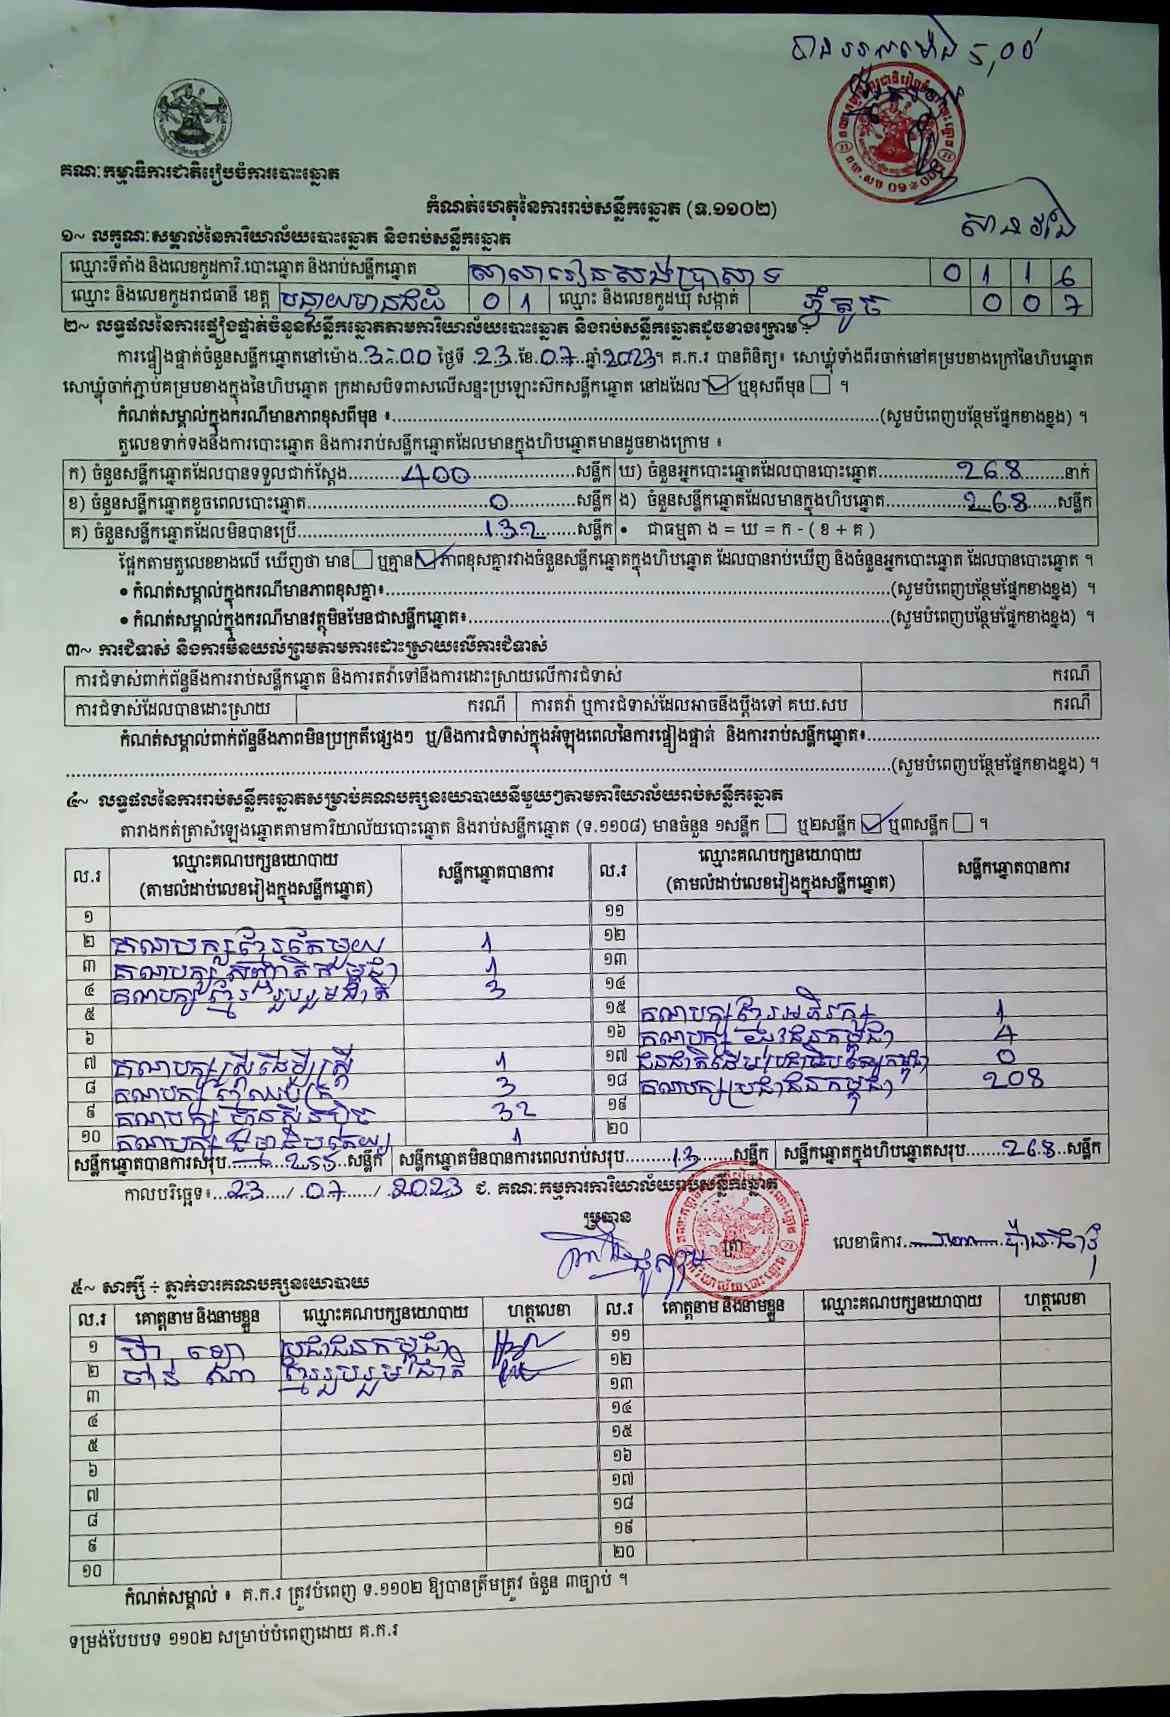 បានទទួលម៉ោង 5,00
គណៈកម្មាធិការជាតិរៀបចំការបោះឆ្នោត
កំណត់ហេតុនៃការរាប់សន្លឹកឆ្នោត (ទ.១១០២)
១~ លក្ខណៈសម្គាល់នៃការិយាល័យបោះឆ្នោត និងរាប់សន្លឹកឆ្នោត
ឈ្មោះទីតាំង និងលេខកូដការិ.បោះឆ្នោត និងរាប់សន្លឹកឆ្នោត សាលារៀនសង់ប្រាសាទ 0 1 1 6
ឈ្មោះ និងលេខកូដរាជធានី ខេត្ត បន្ទាយមានជ័យ 0 1 ឈ្មោះ និងលេខកូដឃុំ សង្កាត់ 0 0 7
២~ លទ្ធផលនៃការផ្ទៀងផ្ទាត់ចំនួនសន្លឹកឆ្នោតតាមការិយាល័យបោះឆ្នោត និងរាប់សន្លឹកឆ្នោតដូចខាងក្រោម ÷
ការផ្ទៀងផ្ទាត់ចំនួនសន្លឹកឆ្នោតនៅម៉ោង 3:00 ថ្ងៃទី 23 ខែ 07 ឆ្នាំ 2023 ។ គ.ក.រ បានពិនិត្យ៖ សោឃ្លុំទាំងពីរចាក់នៅគម្របខាងក្រៅនៃហិបឆ្នោត
សោឃ្លុំចាក់ភ្ជាប់គម្របខាងក្នុងនៃហិបឆ្នោត ក្រដាសបិទពាសលើសន្ទះប្រឡោះស៊កសន្លឹកឆ្នោត នៅដដែល ☑ ឬខុសពីមុន ☐ ។
កំណត់សម្គាល់ក្នុងករណីមានភាពខុសពីមុន ៖ (សូមបំពេញបន្ថែមផ្នែកខាងខ្នង) ។
តួលេខទាក់ទងនឹងការបោះឆ្នោត និងការរាប់សន្លឹកឆ្នោតដែលមានក្នុងហិបឆ្នោតមានដូចខាងក្រោម ៖
ក) ចំនួនសន្លឹកឆ្នោតដែលបានទទួលជាក់ស្តែង 400 សន្លឹក ឃ) ចំនួនអ្នកបោះឆ្នោតដែលបានបោះឆ្នោត 268 នាក់
ខ) ចំនួនសន្លឹកឆ្នោតខូចពេលបោះឆ្នោត 0 សន្លឹក ង) ចំនួនសន្លឹកឆ្នោតដែលមានក្នុងហិបឆ្នោត 268 សន្លឹក
គ) ចំនួនសន្លឹកឆ្នោតដែលមិនបានប្រើ 132 សន្លឹក • ជាធម្មតា ង = ឃ = ក - ( ខ + គ )
ផ្អែកតាមតួលេខខាងលើ ឃើញថា មាន ☐ ឬគ្មាន ☑ ភាពខុសគ្នារវាងចំនួនសន្លឹកឆ្នោតក្នុងហិបឆ្នោត ដែលបានរាប់ឃើញ និងចំនួនអ្នកបោះឆ្នោត ដែលបានបោះឆ្នោត ។
• កំណត់សម្គាល់ក្នុងករណីមានភាពខុសគ្នា៖ (សូមបំពេញបន្ថែមផ្នែកខាងខ្នង) ។
• កំណត់សម្គាល់ក្នុងករណីមានវត្ថុមិនមែនជាសន្លឹកឆ្នោត៖ (សូមបំពេញបន្ថែមផ្នែកខាងខ្នង) ។
៣~ ការជំទាស់ និងការមិនយល់ព្រមតាមការដោះស្រាយលើការជំទាស់
ការជំទាស់ពាក់ព័ន្ធនឹងការរាប់សន្លឹកឆ្នោត និងការតវ៉ាទៅនឹងការដោះស្រាយលើការជំទាស់ ករណី
ការជំទាស់ដែលបានដោះស្រាយ ករណី ការតវ៉ា ឬការជំទាស់ដែលអាចនឹងប្តឹងទៅ គឃ.សប ករណី
កំណត់សម្គាល់ពាក់ព័ន្ធនឹងភាពមិនប្រក្រតីផ្សេងៗ ឬ/និងការជំទាស់ក្នុងអំឡុងពេលនៃការផ្ទៀងផ្ទាត់ និងការរាប់សន្លឹកឆ្នោត៖
(សូមបំពេញបន្ថែមផ្នែកខាងខ្នង) ។
៤~ លទ្ធផលនៃការរាប់សន្លឹកឆ្នោតសម្រាប់គណបក្សនយោបាយនីមួយៗតាមការិយាល័យរាប់សន្លឹកឆ្នោត
តារាងកត់ត្រាសំឡេងឆ្នោតតាមការិយាល័យបោះឆ្នោត និងរាប់សន្លឹកឆ្នោត (ទ.១១០៨) មានចំនួន ១សន្លឹក ☐ ឬ២សន្លឹក ☑ ឬ៣សន្លឹក ☐ ។
ល.រ ឈ្មោះគណបក្សនយោបាយ (តាមលំដាប់លេខរៀងក្នុងសន្លឹកឆ្នោត) សន្លឹកឆ្នោតបានការ ល.រ ឈ្មោះគណបក្សនយោបាយ (តាមលំដាប់លេខរៀងក្នុងសន្លឹកឆ្នោត) សន្លឹកឆ្នោតបានការ
១ ១១
២ គណបក្សខ្មែរតែមួយ 1 ១២
៣ គណបក្សសញ្ជាតិកម្ពុជា 1 ១៣
៤ គណបក្សខ្មែររួបរួមជាតិ 3 ១៤
៥ ១៥ គណបក្សខ្មែរអភិរក្ស 1
៦ ១៦ គណបក្សយុវជនកម្ពុជា 4
៧ គណបក្សស្ត្រីដើម្បីស្ត្រី 1 ១៧ ជនជាតិដើមប្រជាធិបតេយ្យកម្ពុជា 0
៨ គណបក្ស 3 ១៨ គណបក្សប្រជាជនកម្ពុជា 208
៩ គណបក្សហ្វ៊ុនស៊ិនប៉ិច 32 ១៩
១០ គណបក្ស 1 ២០
សន្លឹកឆ្នោតបានការសរុប 255 សន្លឹក សន្លឹកឆ្នោតមិនបានការពេលរាប់សរុប 13 សន្លឹក សន្លឹកឆ្នោតក្នុងហិបឆ្នោតសរុប 268 សន្លឹក
កាលបរិច្ឆេទ៖ 23 / 07 / 2023 ជ. គណៈកម្មការការិយាល័យរាប់សន្លឹកឆ្នោត
ប្រធាន
ត្រា
លេខាធិការ
៥~ សាក្សី ÷ ភ្នាក់ងារគណបក្សនយោបាយ
ល.រ គោត្តនាម និងនាមខ្លួន ឈ្មោះគណបក្សនយោបាយ ហត្ថលេខា ល.រ គោត្តនាម និងនាមខ្លួន ឈ្មោះគណបក្សនយោបាយ ហត្ថលេខា
១ ប្រជាជនកម្ពុជា ១១
២ ចាន់ ណា ខ្មែររួបរួមជាតិ ១២
៣ ១៣
៤ ១៤
៥ ១៥
៦ ១៦
៧ ១៧
៨ ១៨
៩ ១៩
១០ ២០
កំណត់សម្គាល់ ៖ គ.ក.រ ត្រូវបំពេញ ទ.១១០២ ឱ្យបានត្រឹមត្រូវ ចំនួន ៣ច្បាប់ ។
ទម្រង់បែបបទ ១១០២ សម្រាប់បំពេញដោយ គ.ក.រ